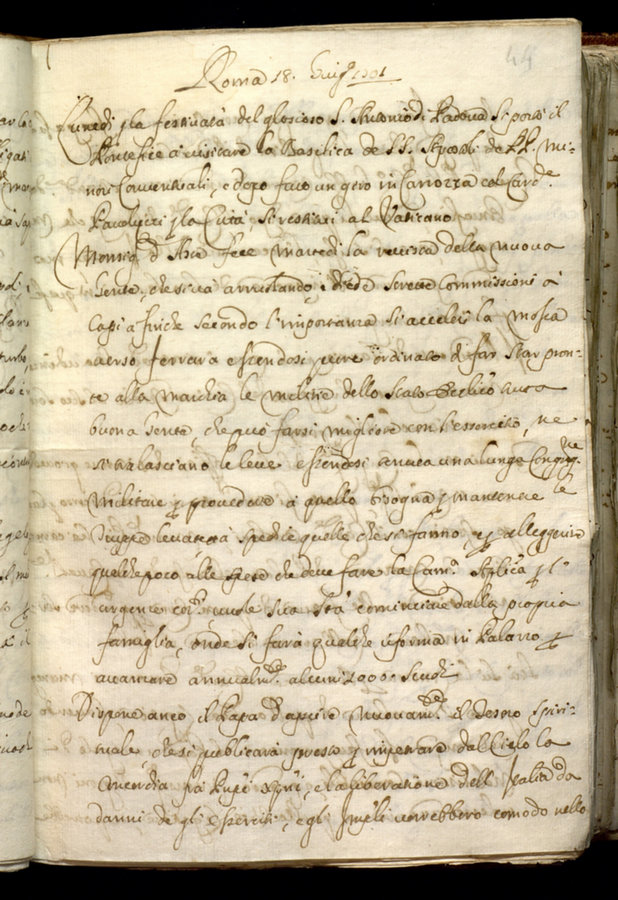 44
Roma 18. Giug.o 1701
Lunedi p la festività del glorioso S. Antonio di Padova si portò il
Pontefice a visitare la Basilica de SS. Apostoli de PP. Mi-
nori Conventuali, e dopo fatto un giro in Carrozza col Card.e
Paolucci p la Città si restituì al Vaticano
Monsig. d'Aste fece Martedi la revista della nuova
Gente, che si va arrolando, e diede strette commissioni a
Capi a finche secondo l'importanza si acceleri la mossa
verso Ferrara essendosi pure ordinato di far star pron-
te alla marchia le militie dello Stato
buona Gente, che può farsi migliore con l'essercitio, ne
si tralasciano le leve essendosi tenuta una lunga Congreg.ne
Militare p provedere a quello bisogna p mantenere le
Truppe levate, e spedir quelle che si fanno, e p alleggerire
qualche poco alle spese che deve fare la Cam.a Aplica p l'
urgenze cor.ti vuole Sua S.tà cominciare dalla propria
famiglia, onde si farà qualche riforma in Palazzo p
avanzare annualm.te alcuni 2000 Scudi
Dispone anco il Papa d'aprire nuovam.te il Tesoro spiri-
tuale, che si publicarà presto p impetrare dal Cielo la

danni de gli eserciti, e gl' Inglesi vorrebbero comodo nello